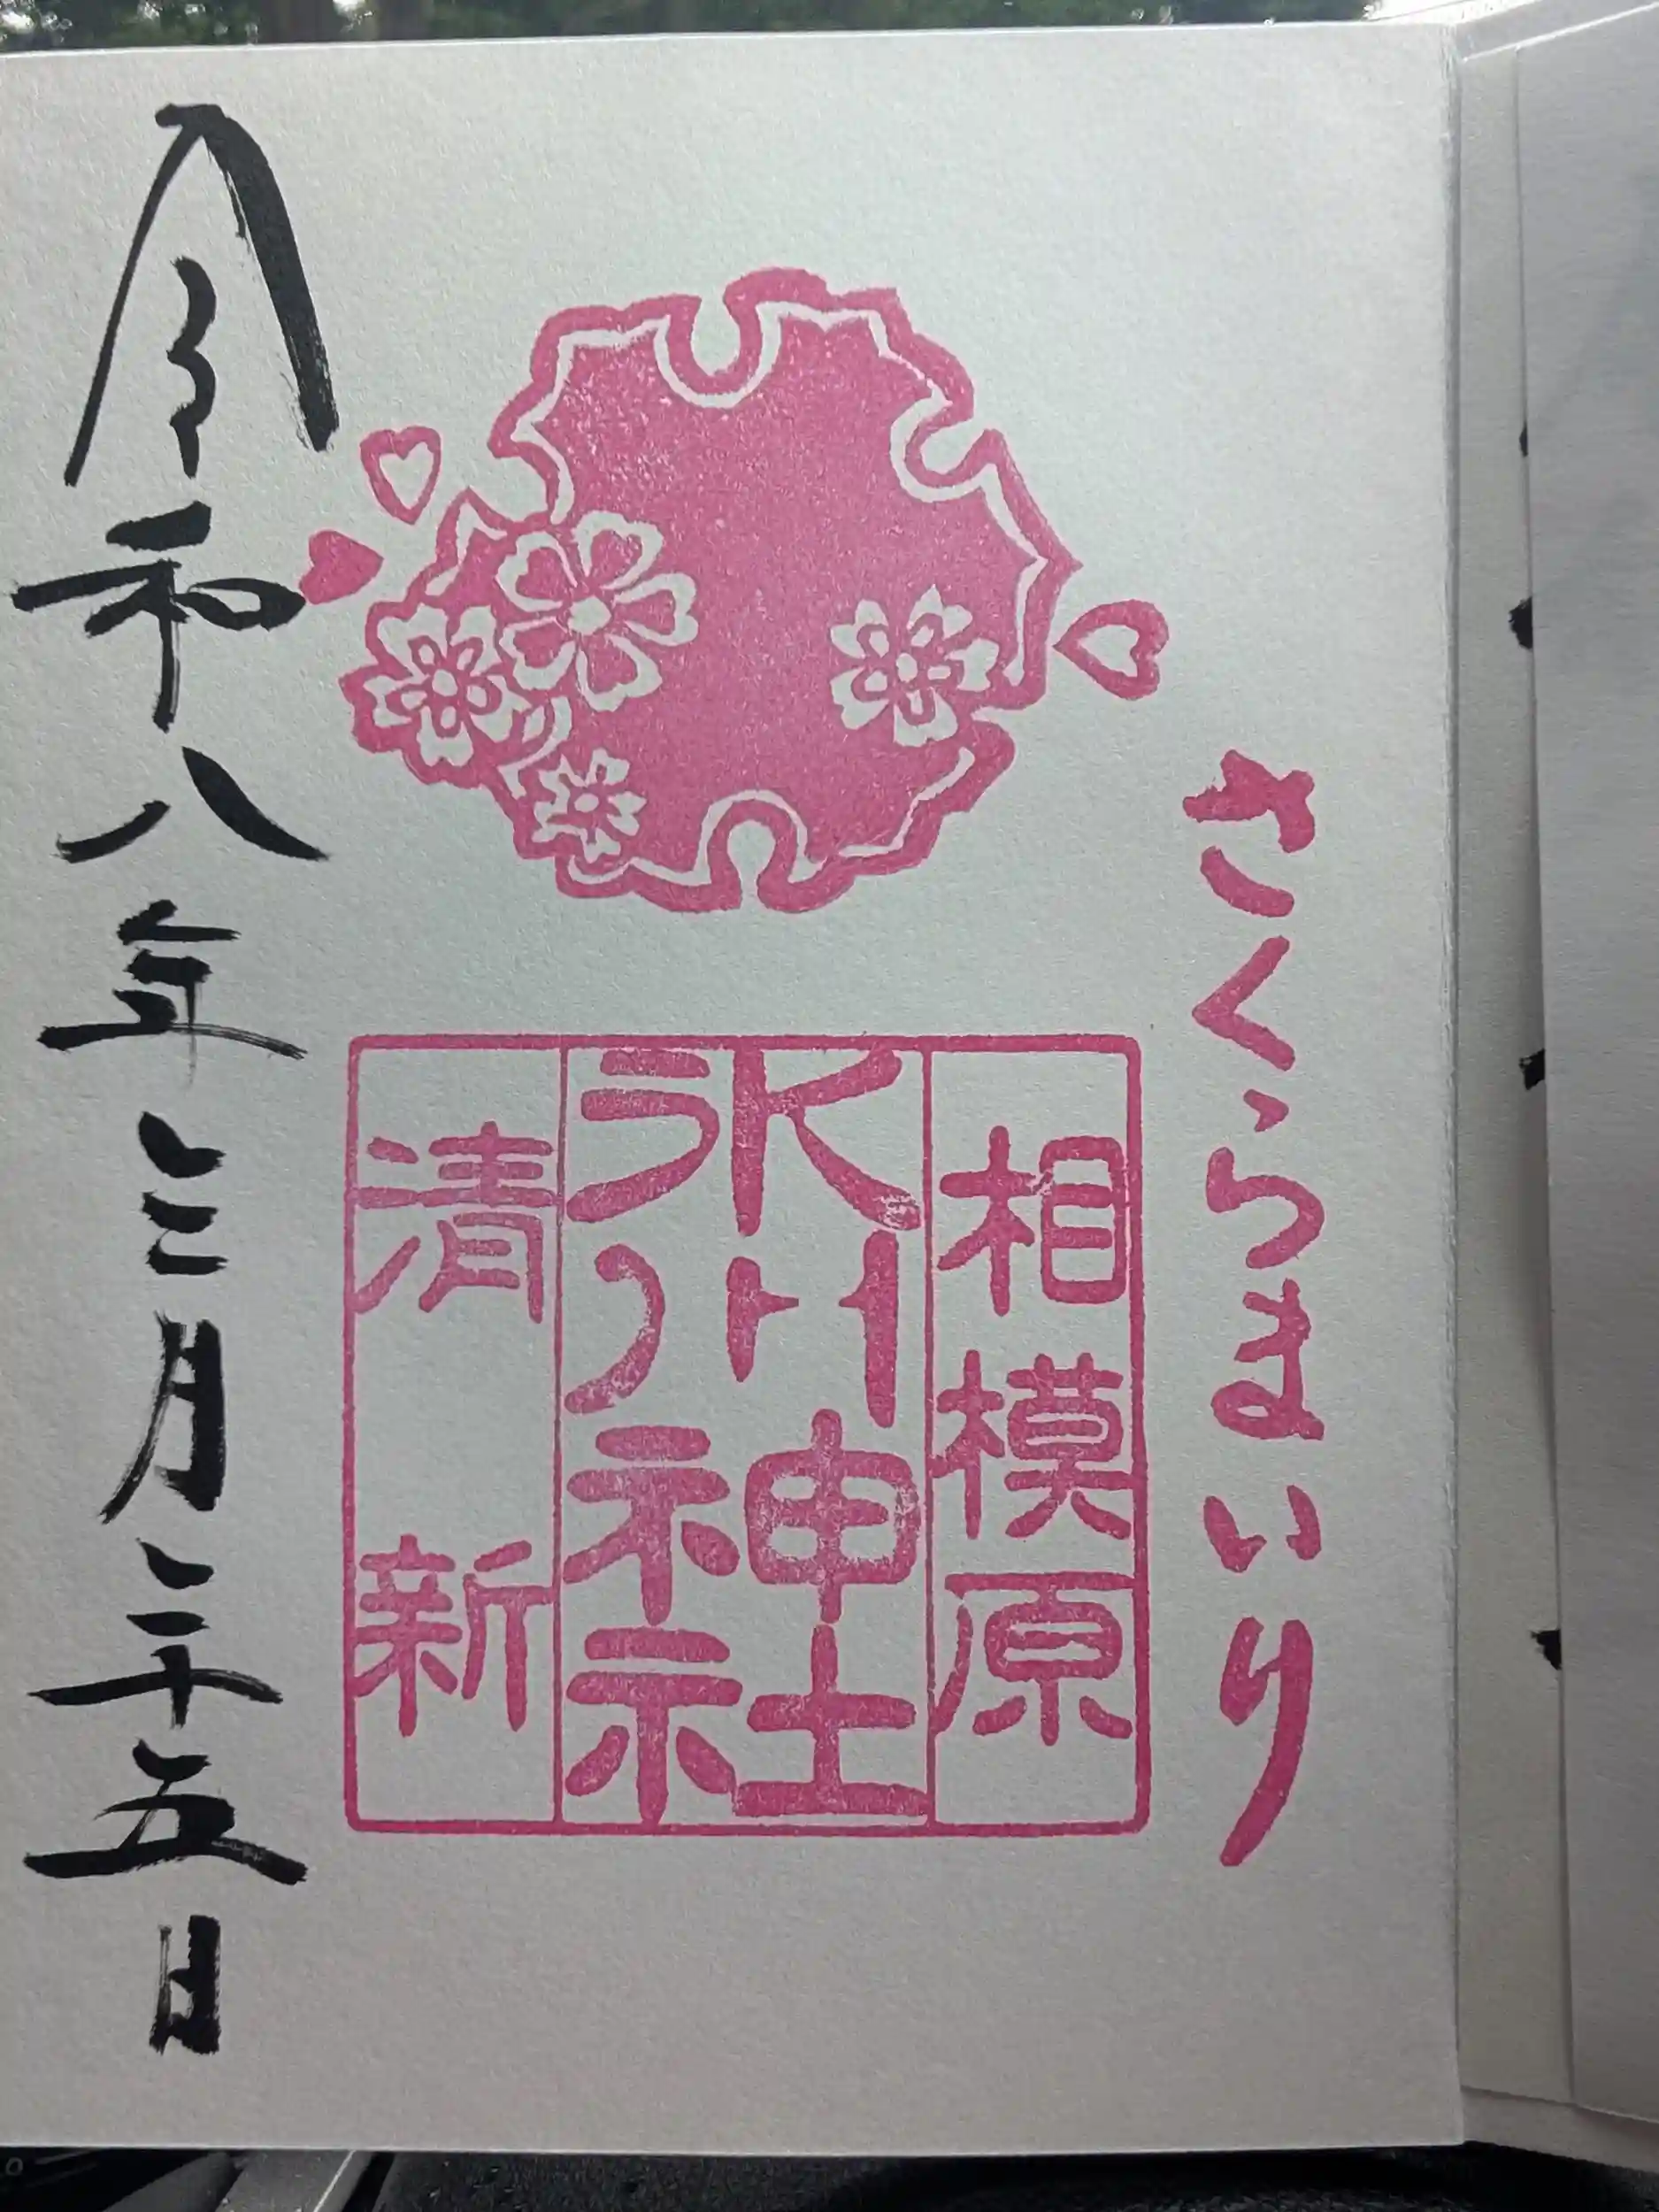 さくらまいり
相模原
氷川神社
清新
令和八年三月二十五日